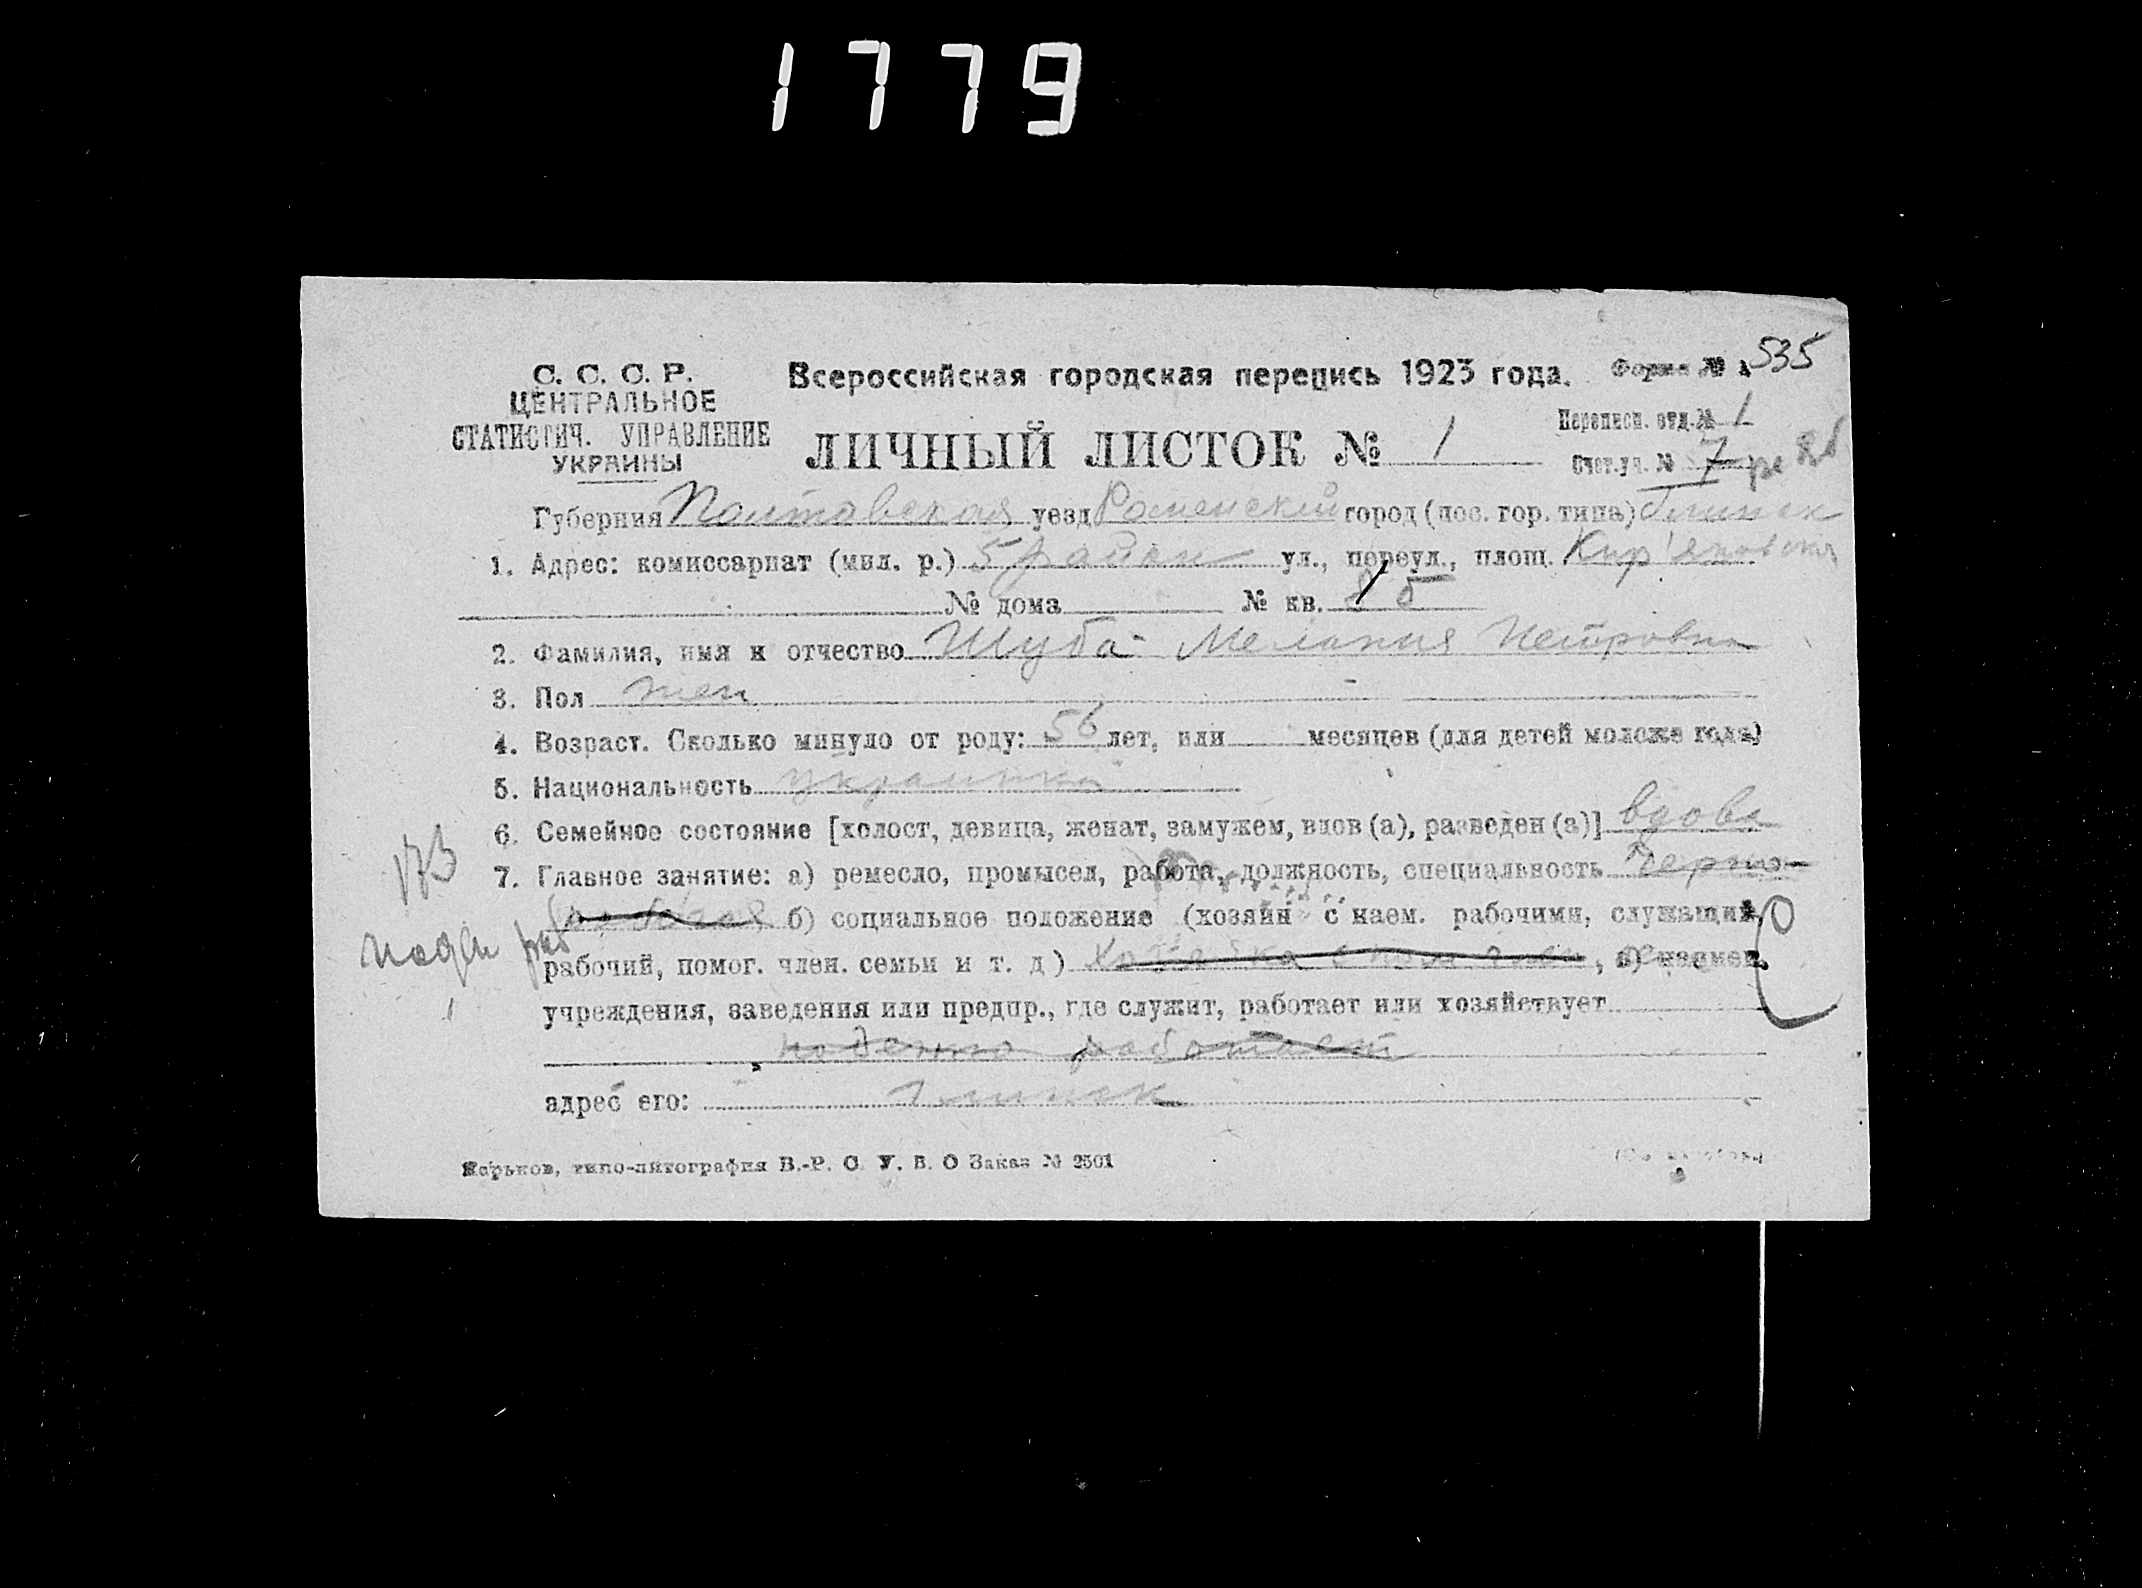 1779
535
С. С. С. Р. Всероссийская городская перепись 1923 года. Форма №
ЦЕНТРАЛЬНОЕ
СТАТИСТИЧ. УПРАВЛЕНИЕ
УКРАИНЫ
ЛИЧНЫЙ ЛИСТОК № 1
Переписн. отд. № 1
Счет. уч. № 7
Губерния Полтавская уезд Роменский город (пос. гор. типа) Глинск
1. Адрес: комиссариат (мил. р.) 5 район ул., переул., площ. Кир'яковская
№ дома № кв.
2. Фамилия, имя и отчество Шуба Мелания Петровна
3. Пол жен
4. Возраст. Сколько минуло от роду: 56 лет, или месяцев (для детей моложе года)
5. Национальность украинка
6. Семейное состояние [холост, девица, женат, замужем, вдов (а), разведен (а)] вдова
173
7. Главное занятие: а) ремесло, промысел, работа, должность, специальность Черно-
рабочая б) социальное положение (хозяин с наем. рабочими, служащий,
рабочий, помог. член. семьи и т. д.) Хозяйка с пом член, в) наимен.
учреждения, заведения или предпр., где служит, работает или хозяйствует
поденно работает
адрес его: Глинск
Харьков, типо-литография В.-Р. С. У. В. О Заказ № 2501